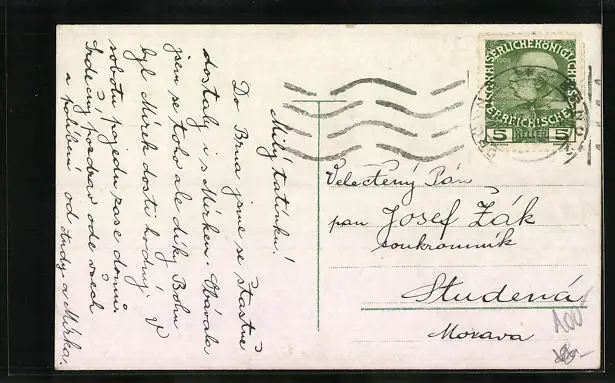 Milý tatínku!
Do Brna jsme se šťastně
dostaly i s Mírkem. Obávala
jsem se toho ale díky Bohu
byl Mírek dosti hodný. V
sobotu pojedu zase domů.
Srdečný pozdrav ode všech
a políbení od
Andy a Mirka.
KAISERLICHE KÖNIGLICHE
ÖSTERREICHISCHE
5 HELLER 5
BRÜNN
Velectěný Pán
pan Josef Žák
soukromník
Studená
Morava
100